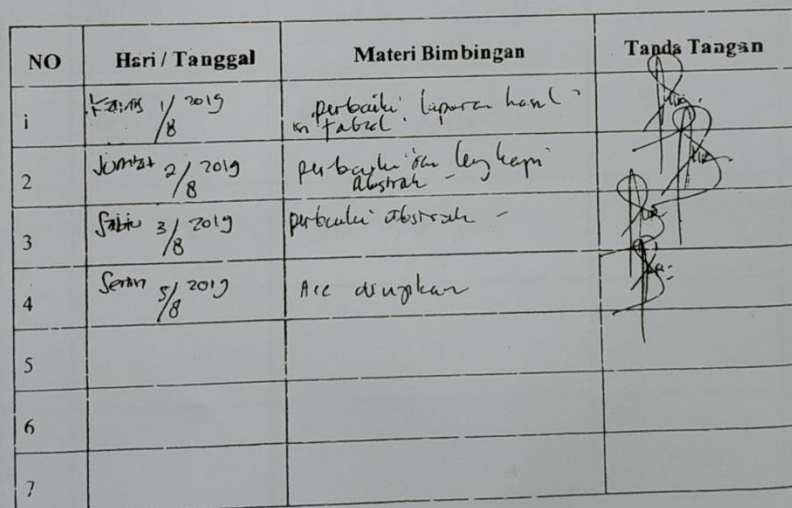 NO Hari / Tanggal Materi Bimbingan Tanda Tangan
1 Kamis 1/8 2019 perbaiki laporan hasil
2 Jum'at 2/8 2019 perbaiki dan lengkapi
abstrak -
3 Sabtu 3/8 2019 perbaiki abstrak -
4 Senin 5/8 2019 Acc
5
6
7